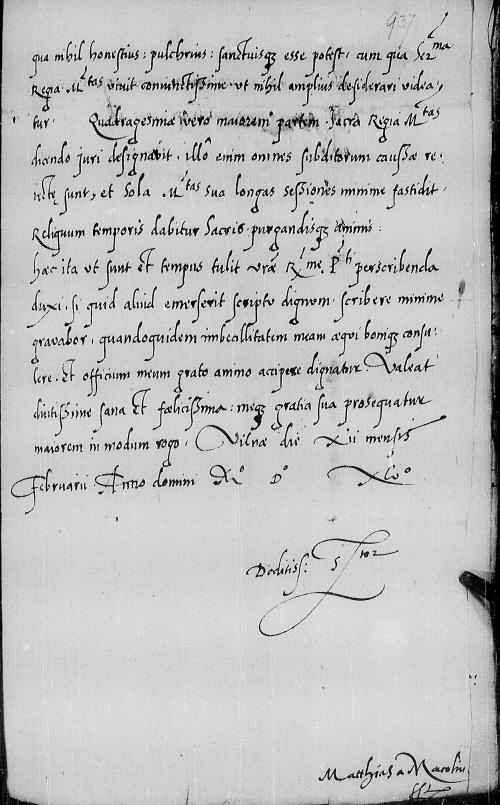 937
qua nihil honestius: pulchrius: sanctiusq3 esse potest. cum qua Ser^ma
Regia M^tas vivit coniunctissime. ut nihil amplius desiderari videa,
tur. Quadragesimae vero maiorem partem. Sacra Regia M^tas
dicendo juri designavit. illo enim omnes subditorum caussae re,
iectę sunt, et sola M^tas sua longas sessiones minime fastidit.
Reliquum temporis dabitur sacris purgandisq3 animis:
haec ita ut sunt et tempus tulit vrae R^me P^ti perscribenda
duxi. si quid aliud emerserit scriptu dignum. scribere minime
gravabor, quandoquidem imbecillitatem meam aequi boniq3 consu,
lere, et officium meum grato animo accipere dignatur Valeat
diutissime sana et foelicissima: meq3 gratia sua prosequatur
maiorem in modum rogo. Vilnae die xii mensis
Februarii Anno domini M° D° Xlv°
Deditiss: S^tor
Matthias a